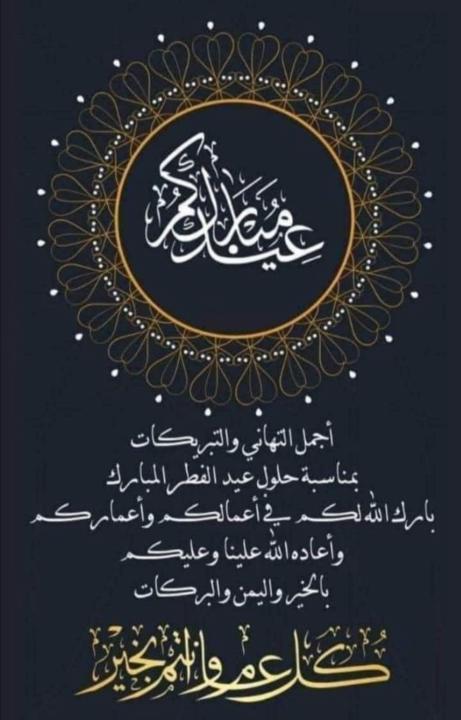 عِيدكُم مُبَارَك
أجمل التهاني والتبريكات
بمناسبة حلول عيد الفطر المبارك
بارك الله لكم في أعمالكم وأعماركم
وأعاده الله علينا وعليكم
بالخير واليمن والبركات
كُل عَام وَانتُم بِخَيْر